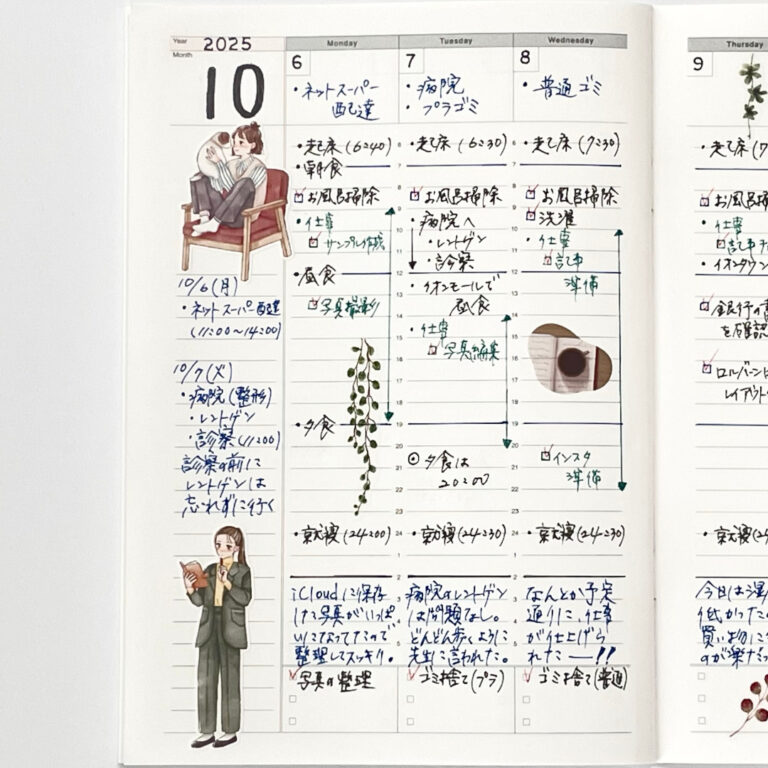 Year 2025
Month 10
10/6(月)
・ネットスーパー配達
(11:00〜14:00)
10/7(火)
・病院(整形)
・レントゲン
・診察(11:00)
診察の前に
レントゲンは
忘れずに行く
Monday
6
・ネットスーパー
配達
・起床(6:40)
・朝食
お風呂掃除
・仕事
サンプル作成
・昼食
写真撮影
・夕食
・就寝(24:00)
iCloudに保存
した写真がいっぱ
いになってたので
整理してスッキリ。
写真の整理
Tuesday
7
・病院
・プラゴミ
6
7
8
9
10
11
12
13
14
15
16
17
18
19
20
21
22
23
24
1
2
3
4
5
・起床(6:30)
お風呂掃除
・病院へ
・レントゲン
・診察
・イオンモールで
昼食
・仕事
写真編集
夕食は
20:00
・就寝(24:30)
病院のレントゲン
は問題なし。
どんどん歩くように
先生に言われた。
ゴミ捨て(プラ)
Wednesday
8
・普通ゴミ
・起床(7:30)
お風呂掃除
洗濯
・仕事
記事
準備
インスタ
準備
・就寝(24:30)
なんとか予定
通りに、仕事
が仕上げら
れたー!!
ゴミ捨て(普通)
Thursday
9
・起床(7
お風呂掃
・仕事
記事
・イオンタウン
銀行の
を確認
ロルバーン
レイアウト
・就寝(2
今日は
低かった
買い物に
のが楽だっ